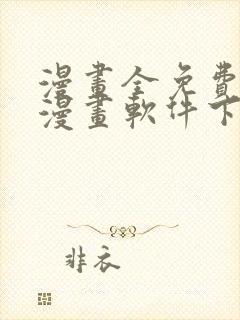 漫畫全免費
漫畫軟件下
非衣